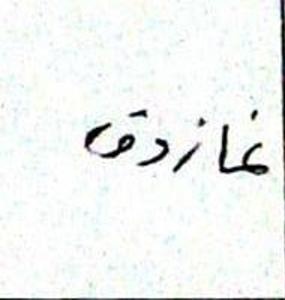 غمازدق